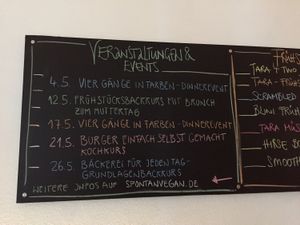 VERANSTALTUNGEN &
EVENTS
4.5. VIER GÄNGE IN FARBEN-DINNEREVENT
12.5. FRÜHSTÜCKSBACKKURS MIT BRUNCH
ZUM MUTTERTAG
17.5. VIER GÄNGE IN FARBEN-DINNEREVENT
21.5. BURGER EINFACH SELBST GEMACHT
KOCHKURS
26.5. BÄCKEREI FÜR JEDEN TAG-
GRUNDLAGENBACKKURS
WEITERE INFOS AUF SPONTANVEGAN.DE
FRÜHS
TARA TWO
TARA - FRÜ
SCRAMBLED
BLINI FRÜH
TARA MÜS
HIRSE B
SMOOTH